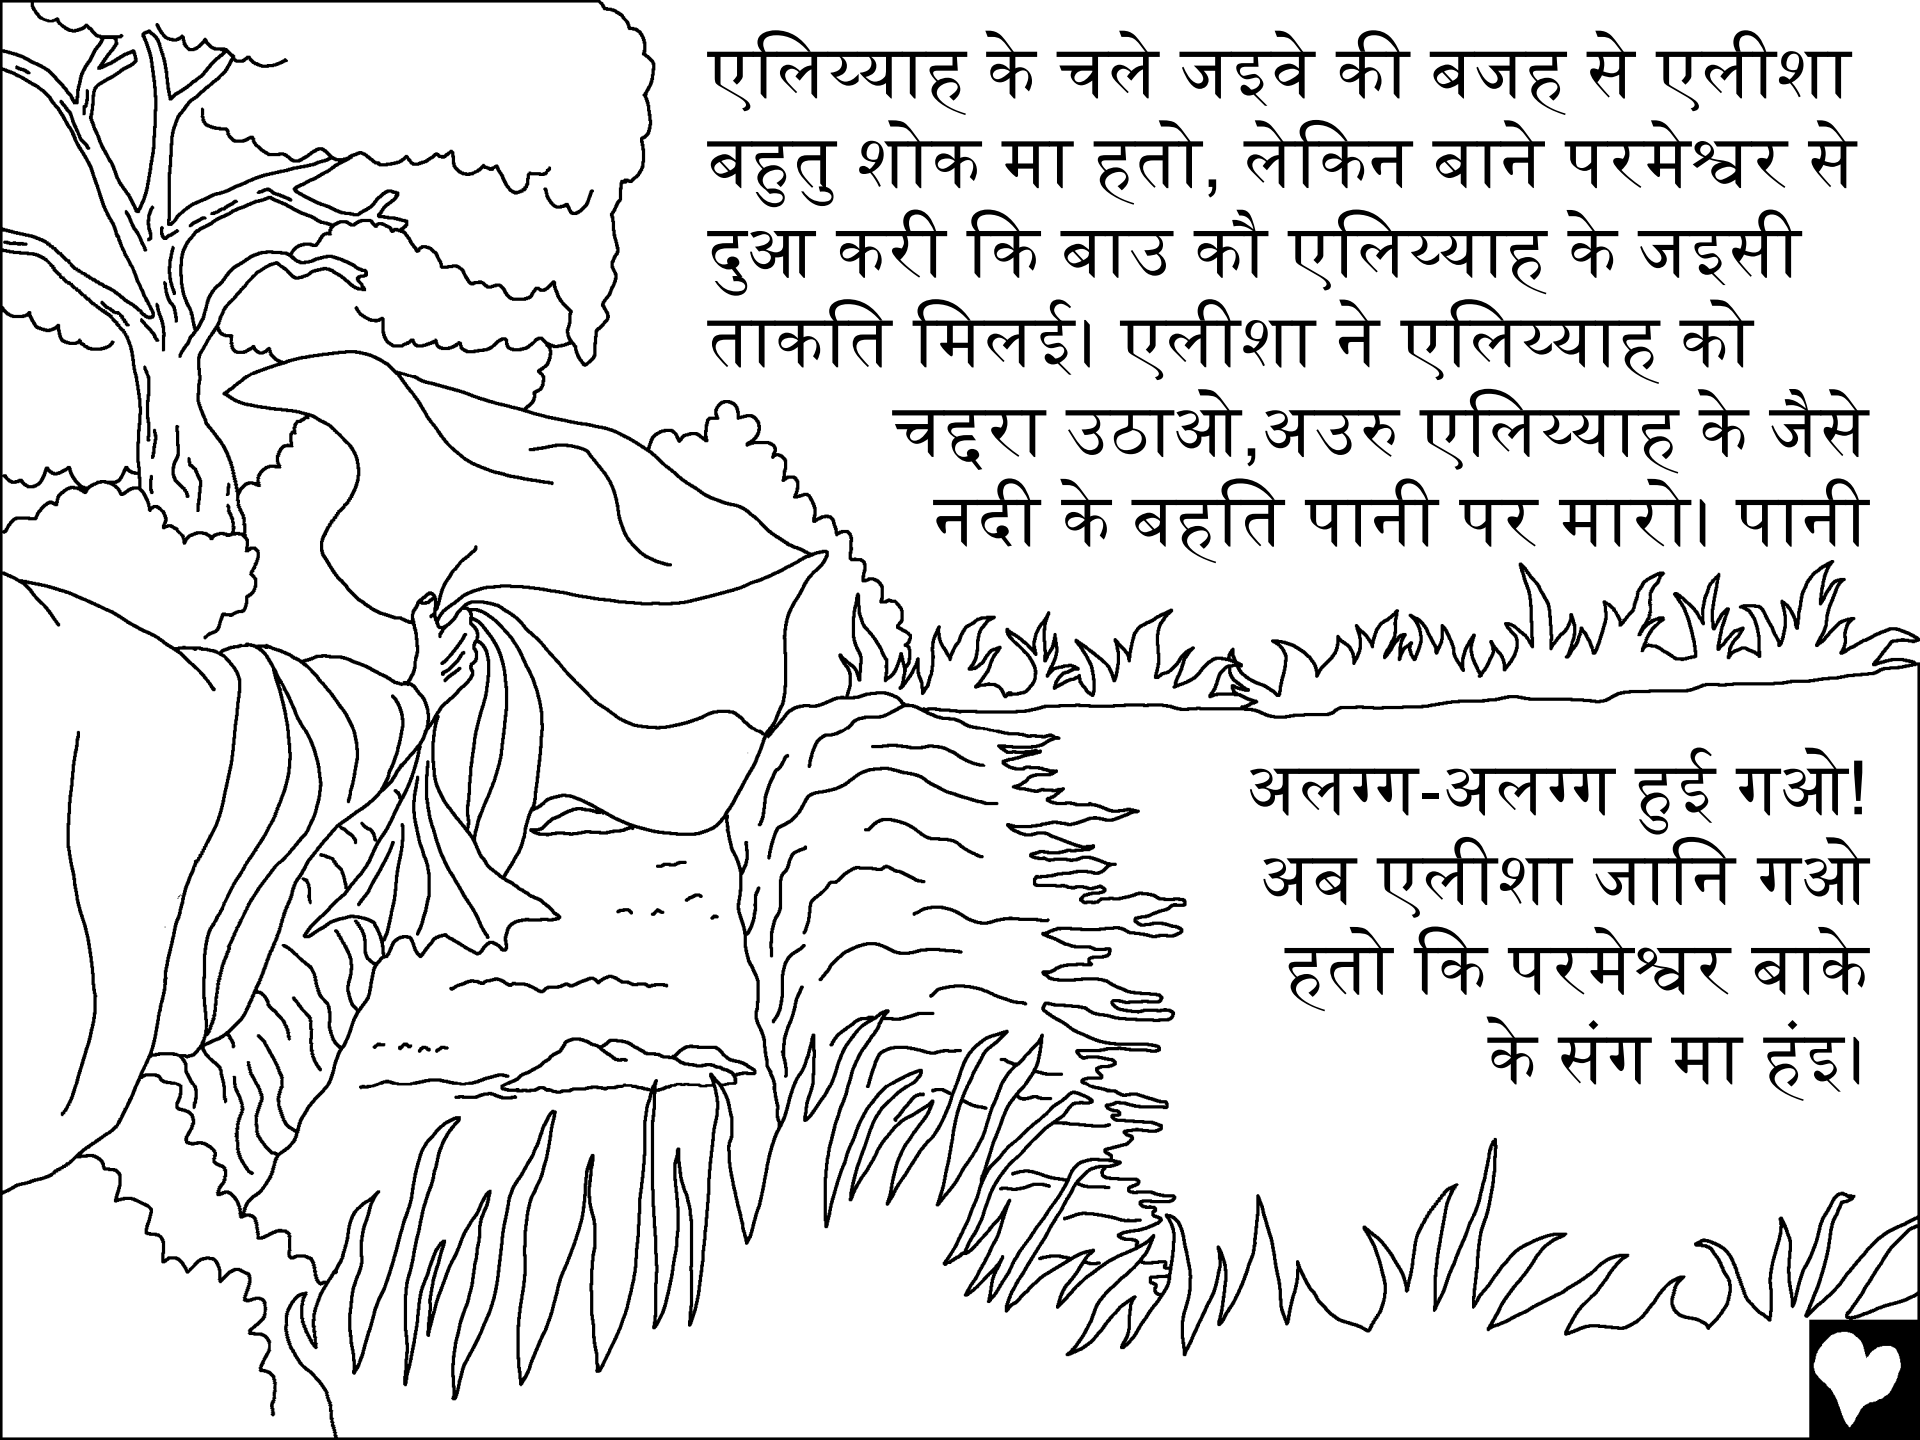 एलिय्याह के चले जइवे की बजह से एलीशा
बहुतु शोक मा हतो, लेकिन बाने परमेश्वर से
दुआ करी कि बाउ कौ एलिय्याह के जइसी
ताकति मिलई। एलीशा ने एलिय्याह को
चद्दरा उठाओ,अउरु एलिय्याह के जैसे
नदी के बहति पानी पर मारो। पानी
अलग्ग-अलग्ग हुई गओ!
अब एलीशा जानि गओ
हतो कि परमेश्वर बाके
के संग मा हंइ।